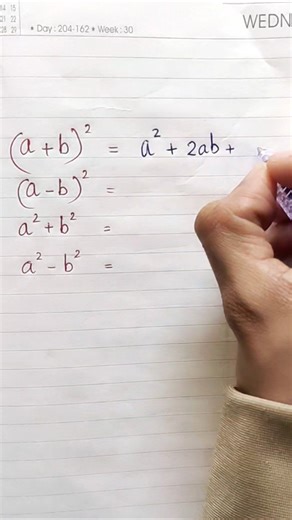 14 15
21 22
28 29
• Day : 204-162 • Week : 30
WEDN
(a + b)² = a² + 2ab +
(a - b)² =
a² + b² =
a² - b² =